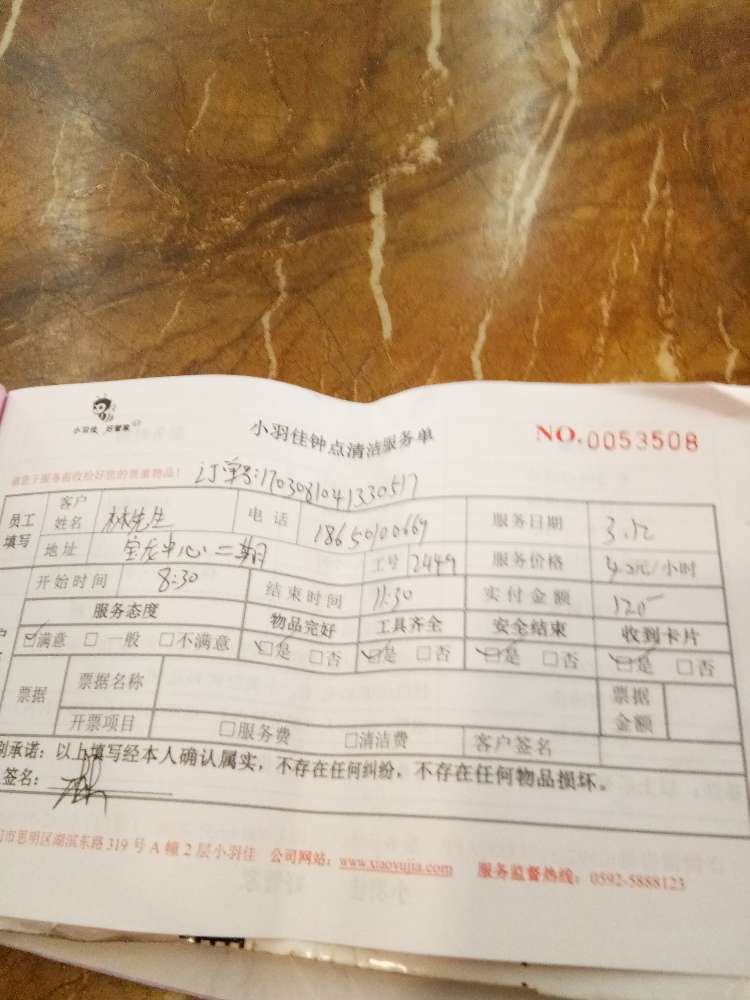 小羽佳 好管家
小羽佳钟点清洁服务单 NO.0053508
订单号:1703081041330517
员工填写 客户姓名 林先生 电话 18650100669 服务日期 3.12
地址 宝龙中心二期 工号 2449 服务价格 元/小时
开始时间 8:30 结束时间 11:30 实付金额 120
服务态度 物品完好 工具齐全 安全结束 收到卡片
☑满意 □一般 □不满意 ☑是 □否 ☑是 □否 ☑是 □否 ☑是 □否
票据 票据名称 票据金额
开票项目 □服务费 □清洁费 客户签名
承诺：以上填写经本人确认属实，不存在任何纠纷，不存在任何物品损坏。
签名：
市思明区湖滨东路319号A幢2层小羽佳 公司网站：www.xiaoyujia.com 服务监督热线：0592-5888123